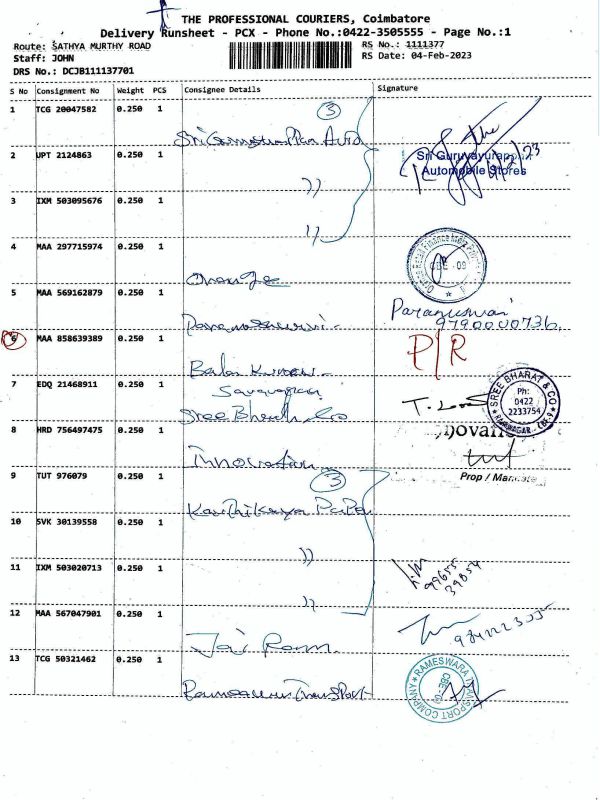 THE PROFESSIONAL COURIERS, Coimbatore
Delivery Runsheet - PCX - Phone No.:0422-3505555 - Page No.:1
Route: SATHYA MURTHY ROAD
RS No.: 1111377
Staff: JOHN
RS Date: 04-Feb-2023
DRS No.: DCJB111137701
S No Consignment No Weight PCS Consignee Details Signature
1 TCG 20047582 0.250 1
3
Sri Guruvayurappan
Automobile Stores
2 UPT 2124863 0.250 1
"
3 IXM 503095676 0.250 1
"
4 MAA 297715974 0.250 1
Orange
5 MAA 569162879 0.250 1
Parameswari
9790000736
6 MAA 858639389 0.250 1
P/R
Balu Kumar
7 EDQ 21468911 0.250 1
Saravanan
Sree Bharath Co
SREE BHARAT & CO
Ph:
0422
2233754
RAMNAGAR CBE-9
8 HRD 756497475 0.250 1
Innovation
Prop /
9 TUT 976079 0.250 1
3
Karthikeya Paper
10 SVK 30139558 0.250 1
"
11 IXM 503020713 0.250 1
99655
39854
"
12 MAA 567047901 0.250 1
Jai Ram
13 TCG 50321462 0.250 1
Rameswara Transport
RAMESWARA TRANSPORT COMPANY